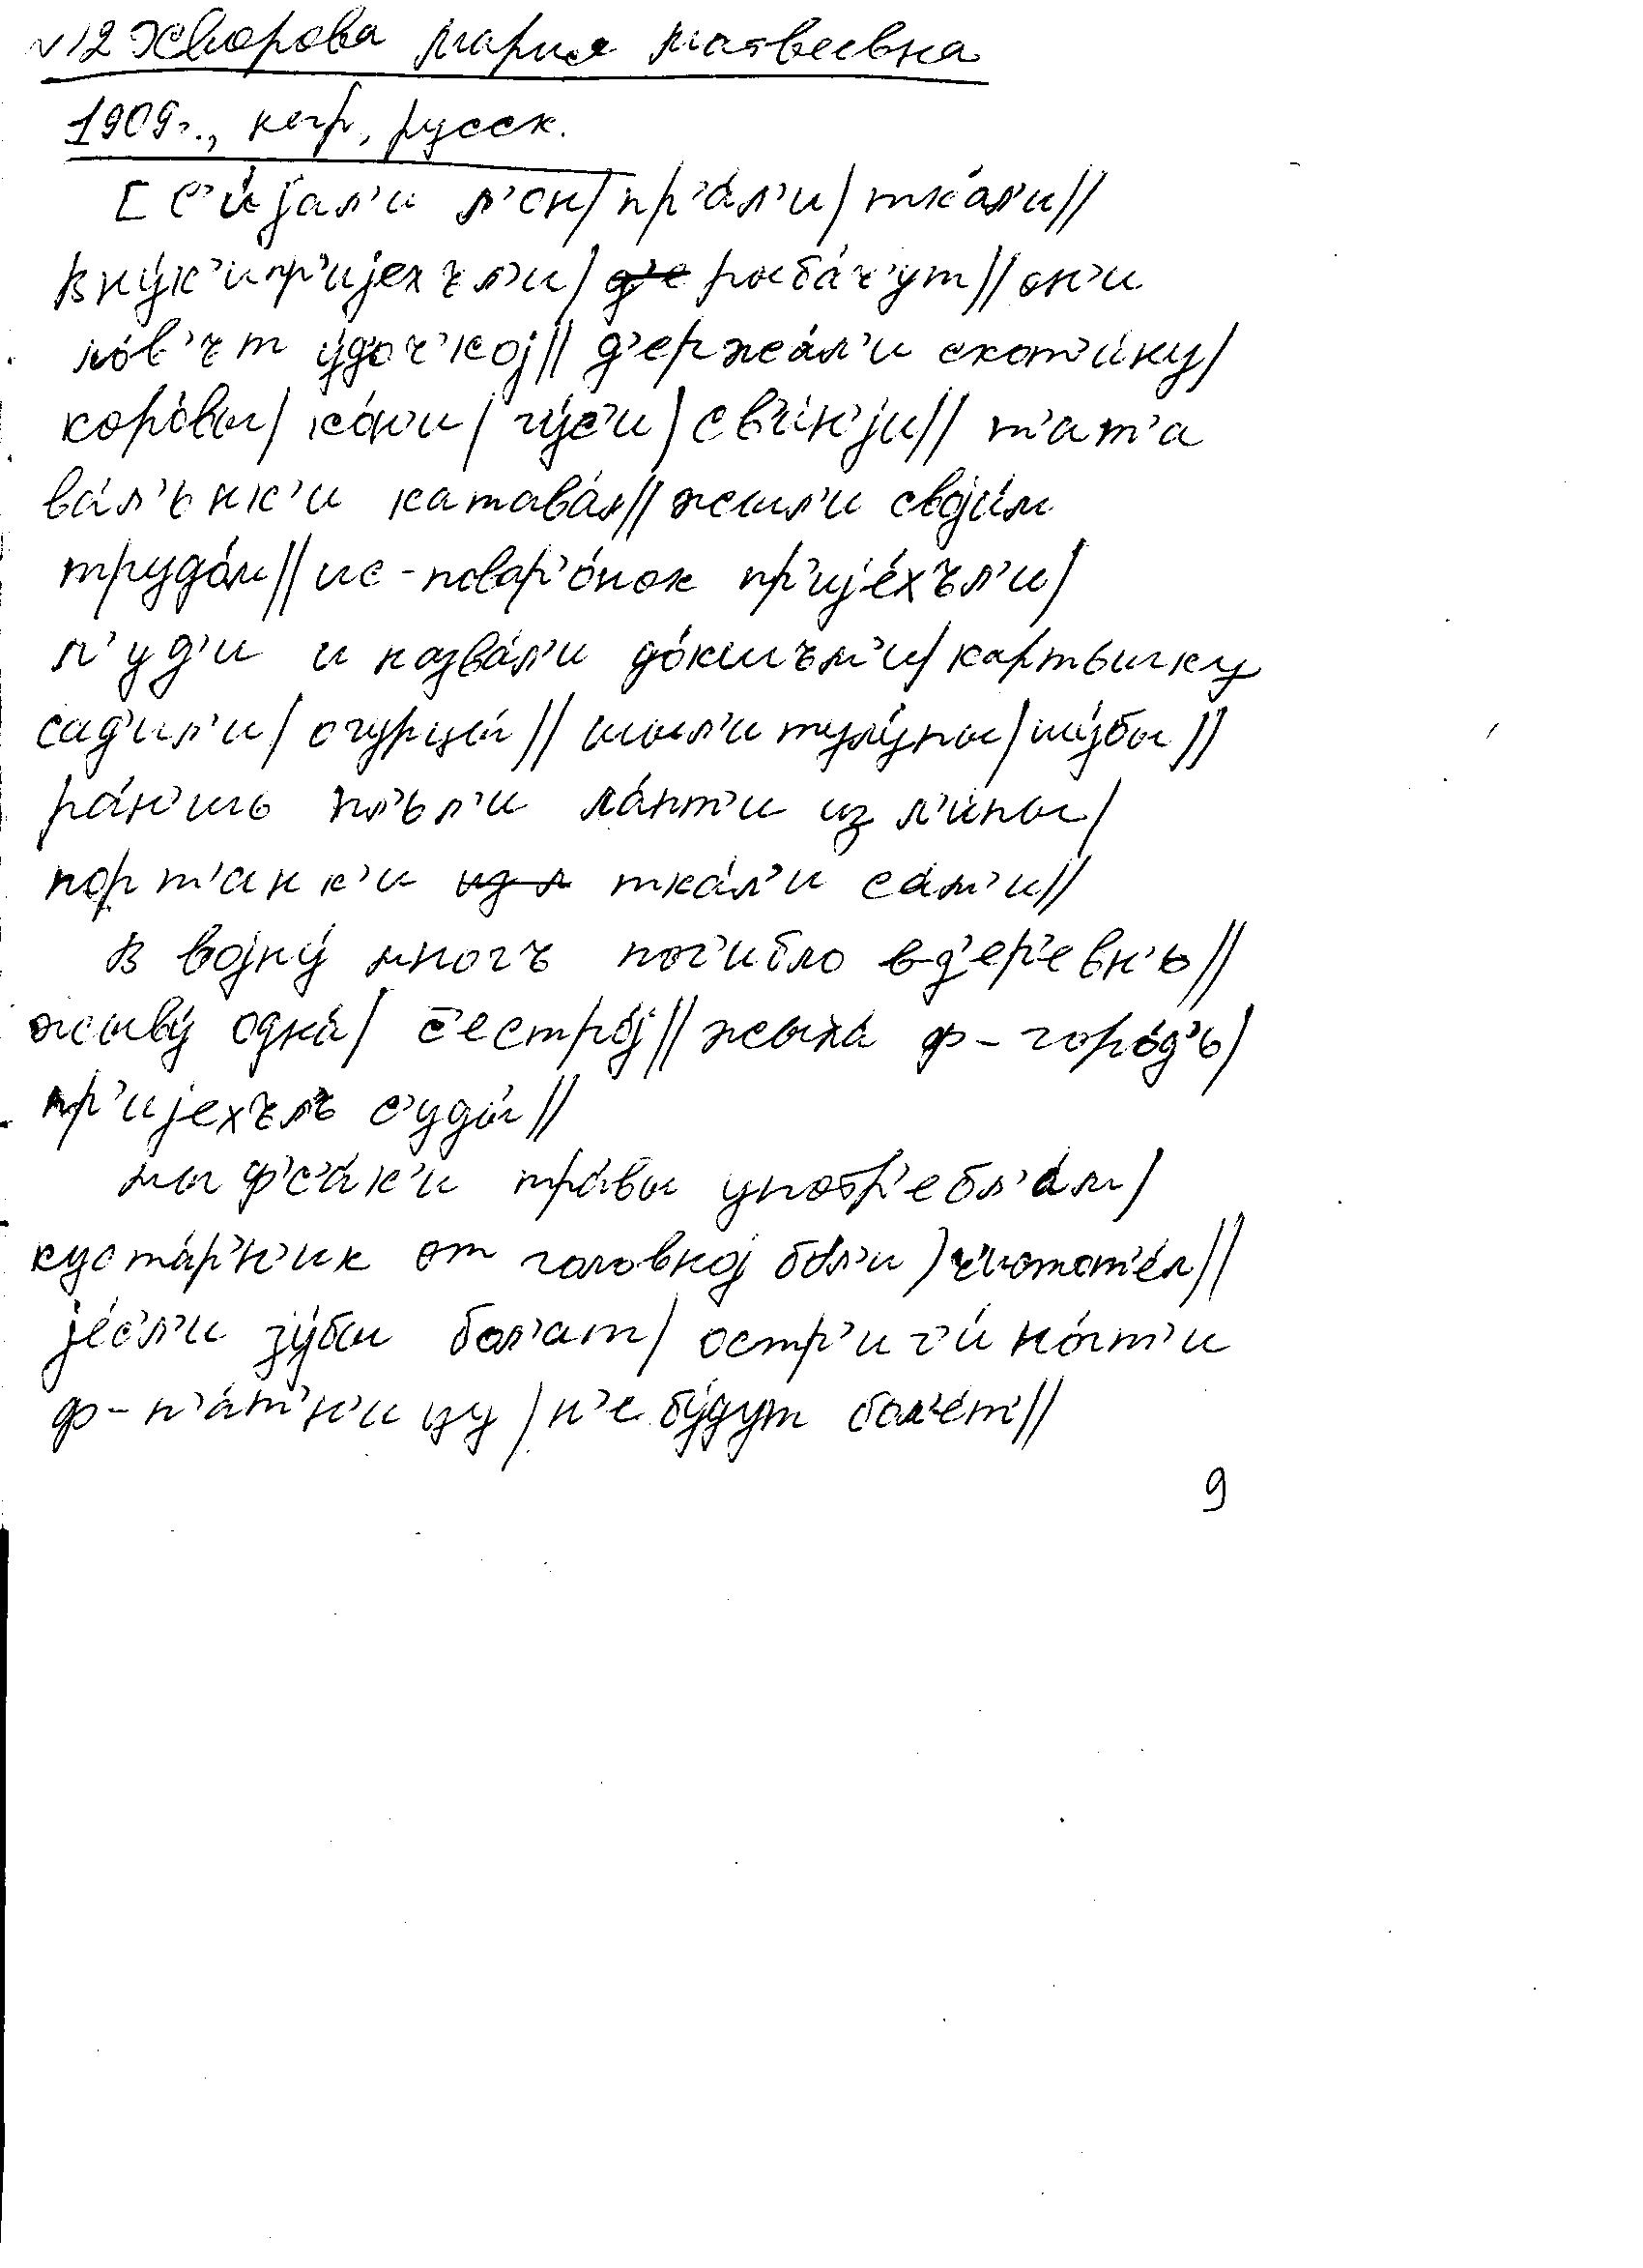 №12 Хворова Мария Матвеевна
1909г., негр, русск.
[с'и́јал'и л'он/ пр'а́л'и/ тка́л'и//
вну́к'и пр'ијехъл'и/ рыба́ч'ут// он'и
ло́в'ът у́доч'кој// д'ержа́л'и скот'и́ну/
коро́вы/ ко́н'и/ гу́с'и/ св'ин'ји// т'ат'а
ва́л'ьнк'и катава́л// жыл'и своји́м
трудо́м// ис-повар'о́нок пр'ије́хъл'и/
л'уд'и и назва́л'и до́кшъм'и/ картышку
сад'ил'и/ огурцы́// шыл'и тулу́пы/ шу́бы//
ра́н'шь пл'ьл'и ла́пт'и из л'и́пы/
порт'анк'и тка́л'и са́м'и//
в војну́ многъ пог'ибло в д'ер'евн'ь//
жыву́ одна́/ с'естро́ј// жыла́ ф-горо́д'ь/
пр'ијехълъ с'уды́//
мы фс'а́к'и тра́вы употр'ебл'а́м/
куста́р'н'ик от головној бо́л'и/ ч'истот'е́л//
је́с'л'и зу́бы бол'ат/ остр'иг'и́ но́гт'и
ф-п'а́т'н'ицу/ н'е бу́дут бол'е́т'//
9